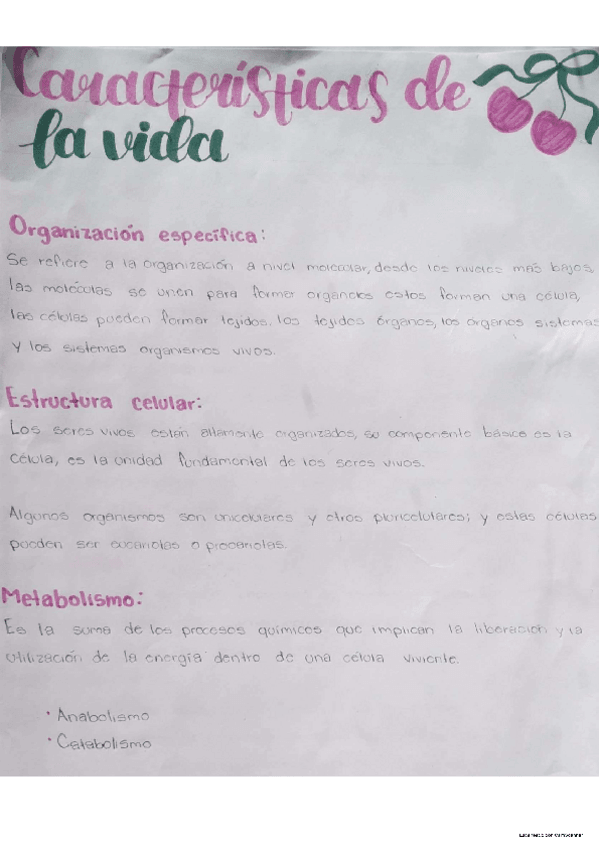 Características de
la vida
Organización específica:
Se refiere a la organización a nivel molecular, desde los niveles más bajos,
las moléculas se unen para formar organelos estos forman una célula,
las células pueden formar tejidos, los tejidos órganos, los órganos sistemas
y los sistemas organismos vivos.
Estructura celular:
Los seres vivos están altamente organizados, su componente básico es la
célula, es la unidad fundamental de los seres vivos.
Algunos organismos son unicelulares y otros pluricelulares; y estas células
pueden ser eucariotas o procariotas.
Metabolismo:
Es la suma de los procesos químicos que implican la liberación y la
utilización de la energía dentro de una célula viviente.
• Anabolismo
• Catabolismo